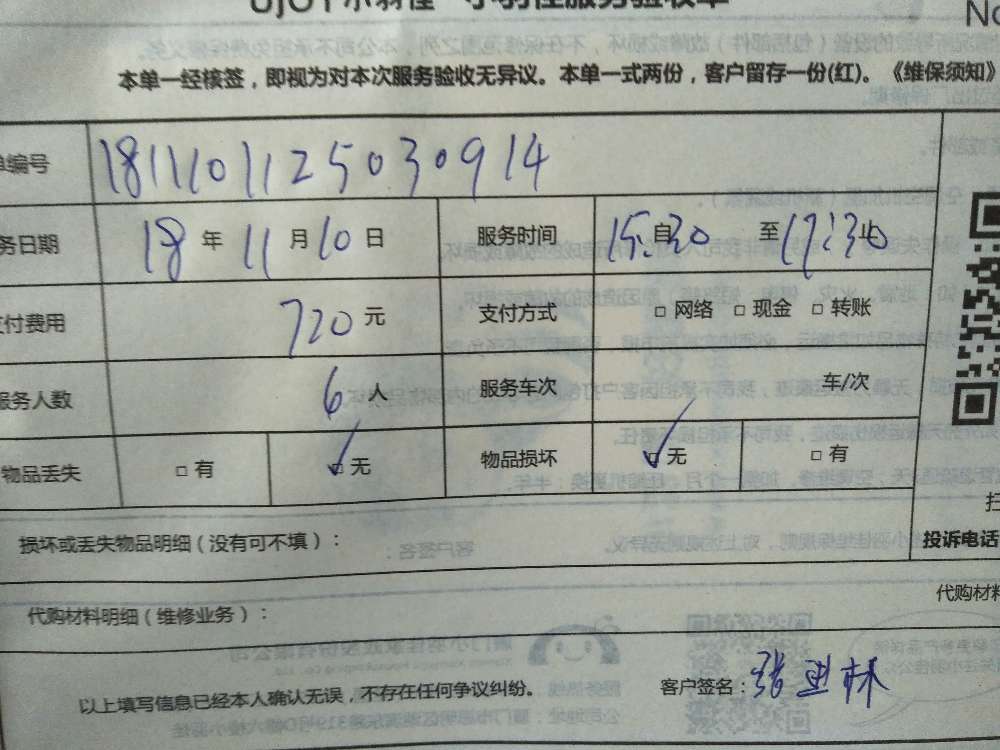 UJOY小羽佳 小羽佳服务验收单
No
本单一经核签，即视为对本次服务验收无异议。本单一式两份，客户留存一份(红)。《维保须知》
单编号 1811101125030914
务日期 18 年 11 月 10 日 服务时间 15:30 自 至 17:30 止
支付费用 720 元 支付方式 □ 网络 □ 现金 □ 转账
服务人数 6 人 服务车次 车/次
物品丢失 □ 有 ☑ 无 物品损坏 ☑ 无 □ 有
扫
损坏或丢失物品明细（没有可不填）：
投诉电话
代购材料明细（维修业务）：
代购材料
以上填写信息已经本人确认无误，不存在任何争议纠纷。
客户签名：张
林